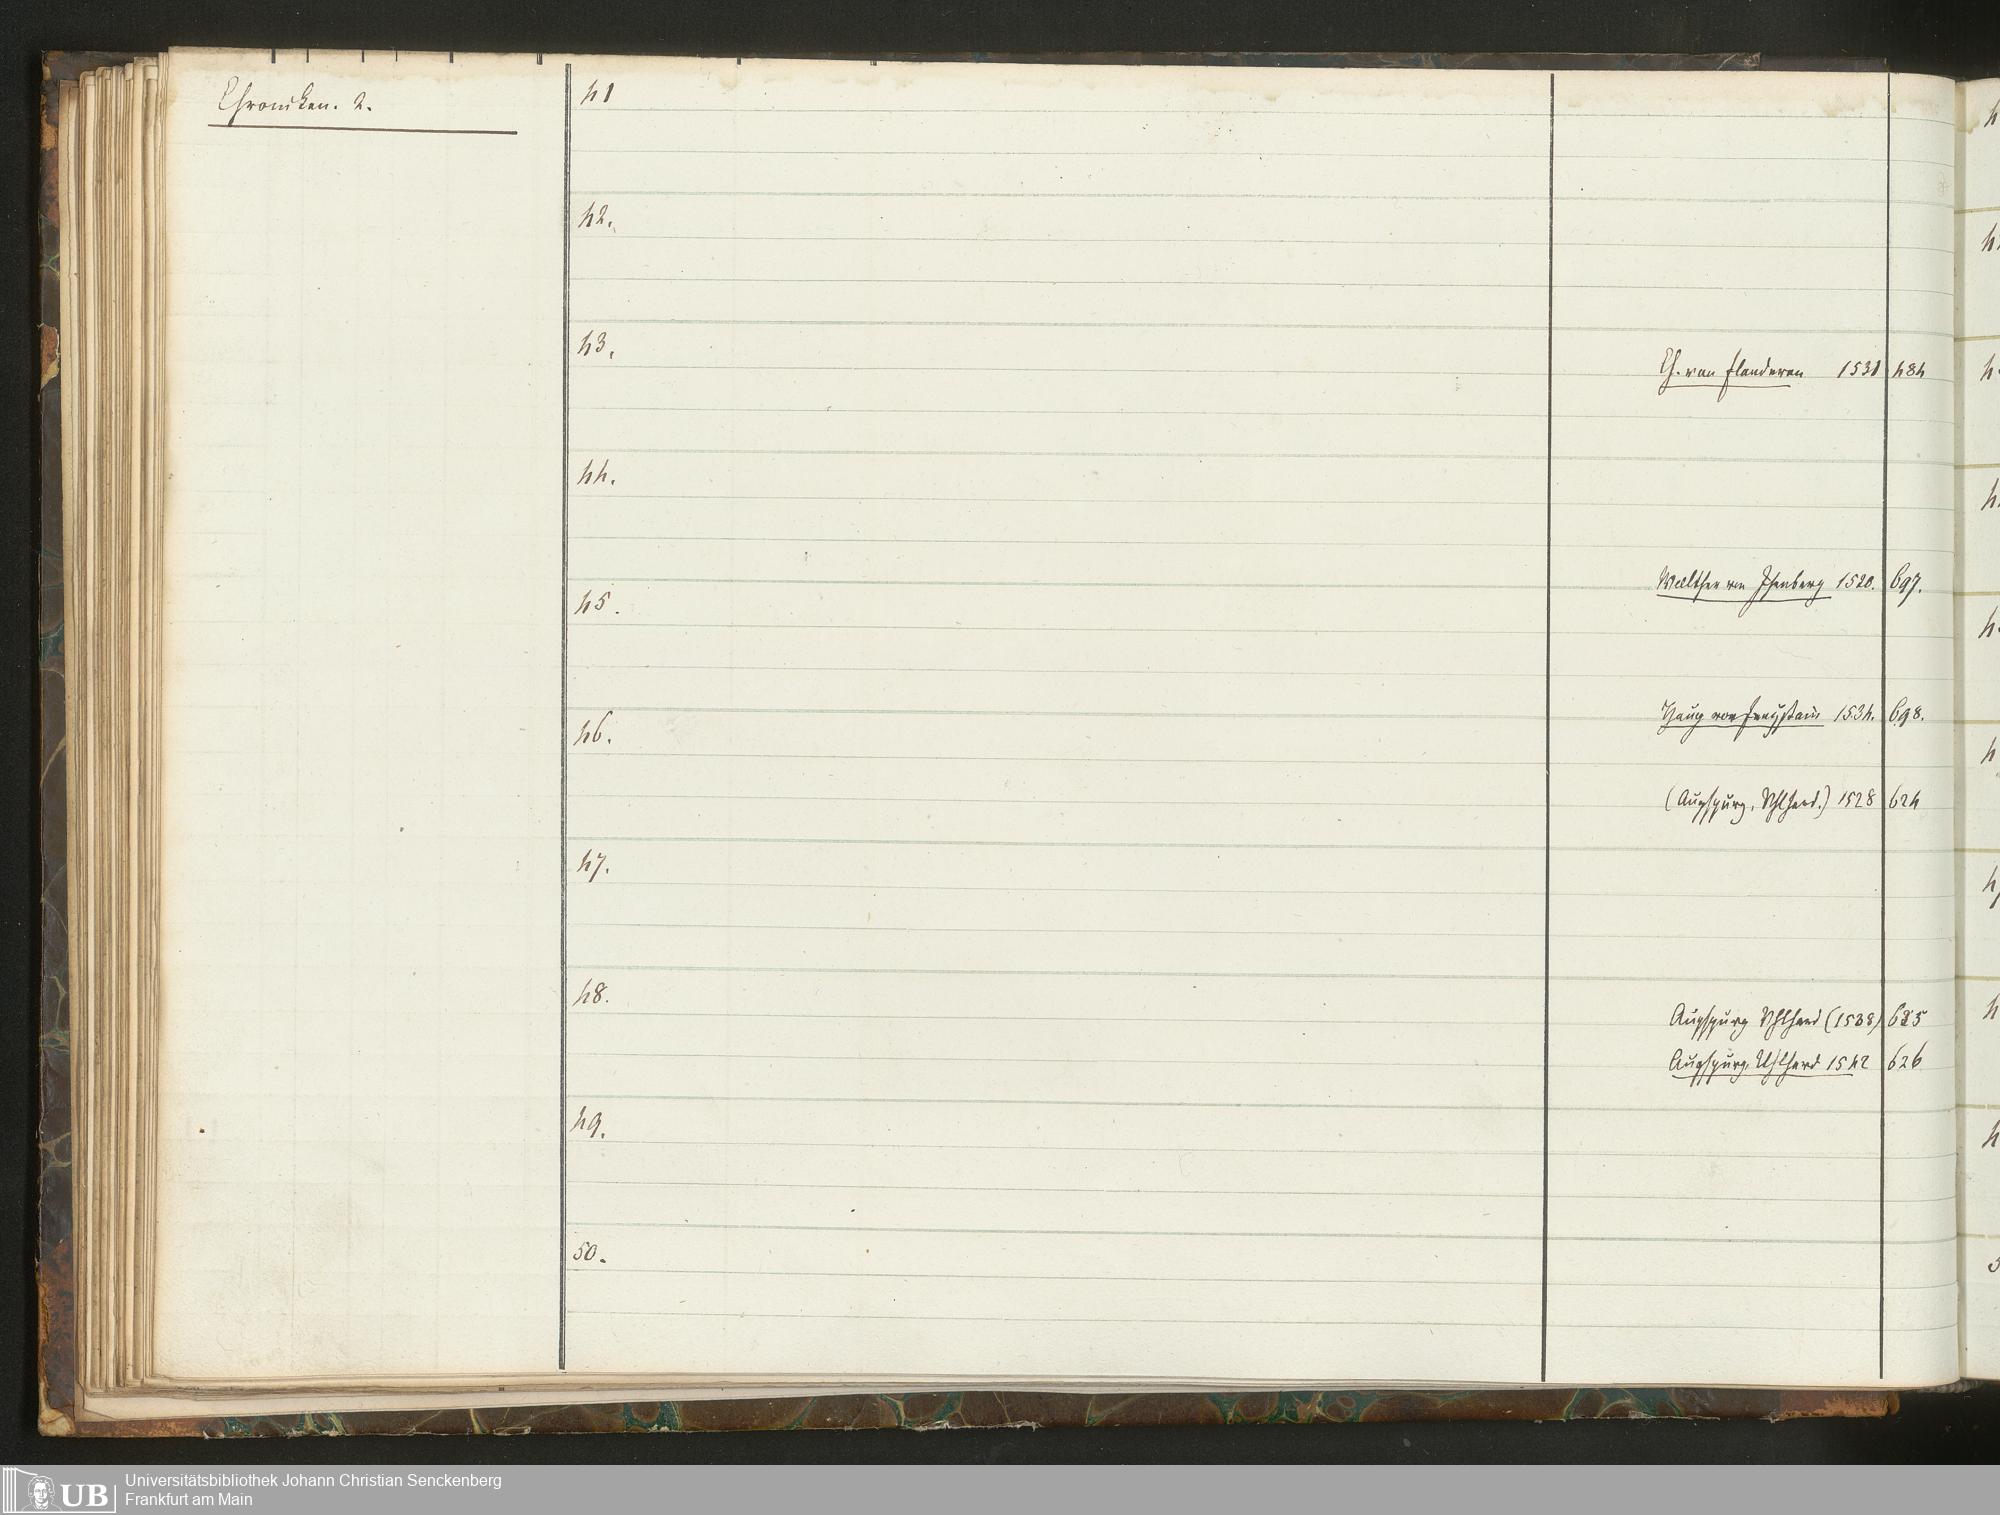 Chroniken. 2.
41
42.
43.
Ch. von Flanderen 1531 484
44.
Walther von Isenberg 1520. 697.
45.
Haug von 1534. 698.
46.
(Augspurg, Uhlhard.) 1528 624
47.
48.
Augspurg Uhlhard (1538) 625
Augspurg, Uhlhard 1542 626
49.
50.
UB
Universitätsbibliothek Johann Christian Senckenberg
Frankfurt am Main